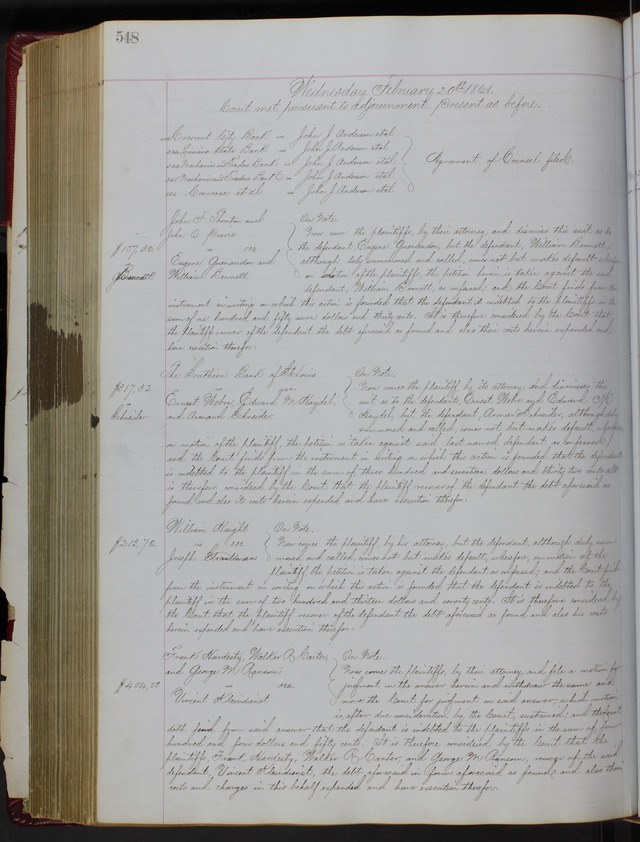 548
Wednesday February 20th 1861.
Court met pursuant to adjournment, present as before.
Crescent City Bank vs John J. Anderson et al
Louisiana State Bank " John J. Anderson et al
Mechanics and Traders Bank " John J. Anderson et al
Mechanics and Traders Bank " John J. Anderson et al
Converse et al " John J. Anderson et al
Agreement of Counsel filed.
John F. Thornton and
John O. Pierce
vs
Eugene and
William Bennett
$157,30
Bennett
On Note.
Now come the plaintiffs, by their attorney, and dismiss this suit as to
the defendant Eugene, but the defendant, William Bennett,
although duly summoned and called, comes not but makes default, wherefore
on motion of the plaintiffs, the petition herein is taken against the said
defendant, William Bennett, as confessed; and the Court finds from the
instrument in writing on which this action is founded that the defendant is indebted to the plaintiffs in the
sum of one hundred and fifty seven dollars and thirty cents. It is therefore considered by the Court that
the plaintiffs recover of the defendant the debt aforesaid as found and also their costs herein expended and
have execution therefor.
The Southern Bank of St Louis
vs
Ernest Weber, Edward M. Haydel,
and Armand Schneider.
$317,32
Schneider
On Note.
Now comes the plaintiff by its attorney, and dismisses this
suit as to the defendants Ernest Weber and Edward M.
Haydel, but the defendant, Armand Schneider, although duly
summoned and called, comes not, but makes default, wherefore
on motion of the plaintiff, the petition is taken against said last named defendant as confessed;
and the Court finds from the instrument in writing on which this action is founded, that the defendant
is indebted to the plaintiff in the sum of three hundred and seventeen dollars and thirty two cents. It
is therefore considered by the Court that the plaintiff recover of the defendant the debt aforesaid as
found and also its costs herein expended and have execution therefor.
William Haight
vs
Joseph Stroutman
$213,70
On Note.
Now comes the plaintiff by his attorney, but the defendant, although duly sum-
moned and called, comes not but makes default, wherefore, on motion of the
plaintiff, the petition is taken against the defendant as confessed; and the Court finds
from the instrument in writing on which this action is founded that the defendant is indebted to the
plaintiff in the sum of two hundred and thirteen dollars and seventy cents. It is therefore considered by
the Court that the plaintiff recover of the defendant the debt aforesaid as found and also his costs
herein expended and have execution therefor.
Frank Hardesty, Walker R. Carter,
and George M. Ransom
vs
Vincent Kleindienst
$404,50
On Note.
Now come the plaintiffs, by their attorney, and file a motion for
judgment on the answer herein and withdraw the same and
move the Court for judgment on said answer, which motion
is, after due consideration by the Court, sustained; and the Court
doth find from said answer that the defendant is indebted to the plaintiffs in the sum of four
hundred and four dollars and fifty cents. It is therefore considered by the Court that the
plaintiffs, Frank Hardesty, Walker R. Carter, and George M. Ransom, recover of the said
defendant, Vincent Kleindienst, the debt aforesaid in form aforesaid as found, and also their
costs and charges in this behalf expended and have execution therefor.